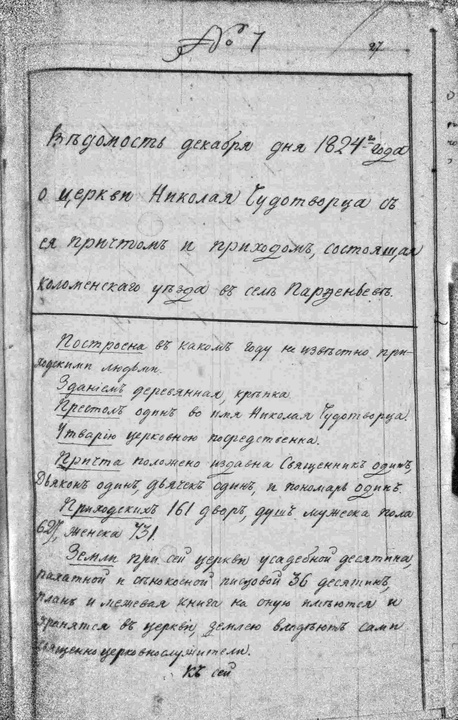 № 7
27
Вѣдомость декабря дня 1824го года
о церкви Николая Чудотворца съ
ея причтомъ и приходомъ, состоящая
Коломенскаго уѣзда въ селѣ Парѳеньевѣ.
Построена въ какомъ году не извѣстно при-
ходскими людьми.
Зданіемъ деревянная, крѣпка.
Престолъ одинъ во имя Николая Чудотворца
Утварію церковною посредственна.
Причта положено издавна Священникъ одинъ,
Дьяконъ одинъ, дьячекъ одинъ, и пономарь одинъ.
Приходскихъ 161 дворъ, душъ мужеска пола
627, женска 731.
Земли при сей церкви усадебной десятина,
пахатной и сѣнокосной писцовой 36 десятинъ,
планъ и межевая книга на оную имѣются и
хранятся въ церкви, землею владѣютъ сами
священноцерковнослужители.
Къ сей